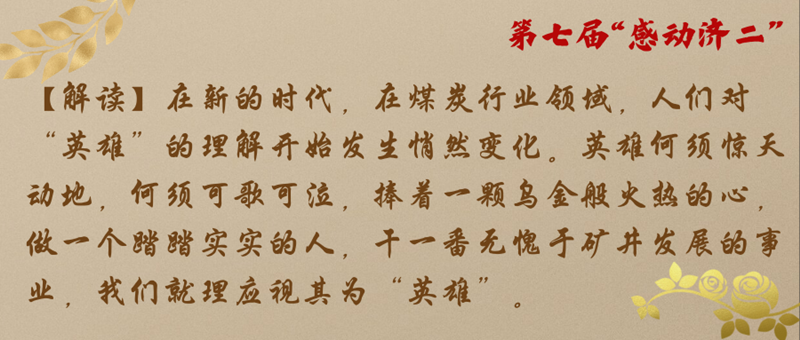 第七届“感动济二”
【解读】在新的时代，在煤炭行业领域，人们对
“英雄”的理解开始发生悄然变化。英雄何须惊天
动地，何须可歌可泣，捧着一颗乌金般火热的心，
做一个踏踏实实的人，干一番无愧于矿井发展的事
业，我们就理应视其为“英雄”。